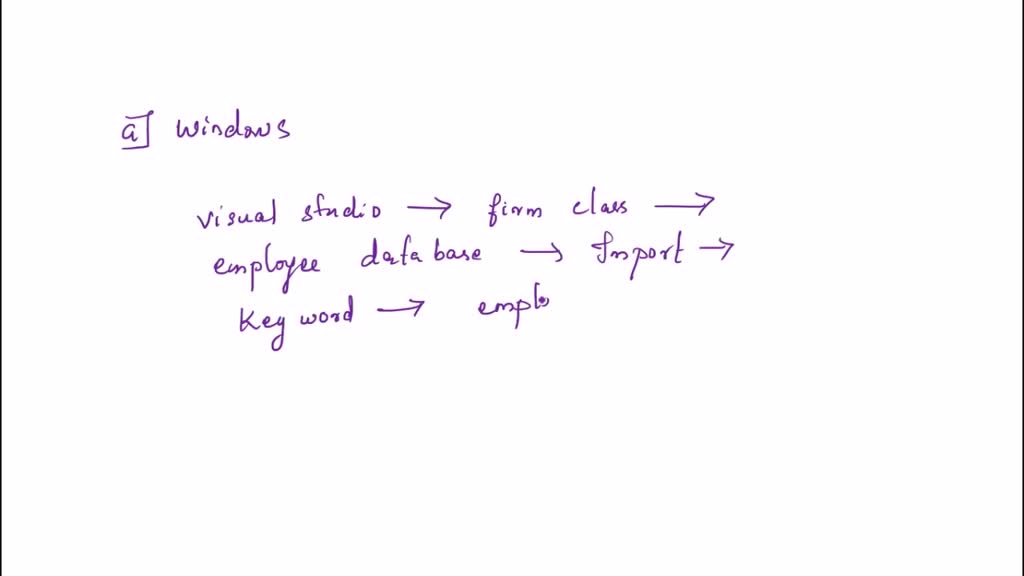 a] windows
visual studio → firm class →
employee data base → Import →
Key word → emplo